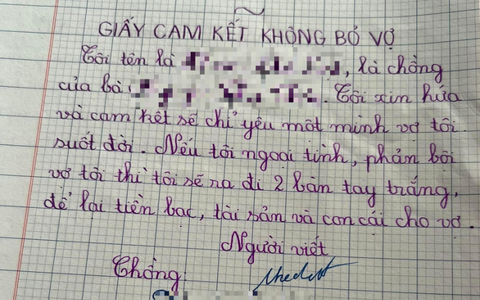 GIẤY CAM KẾT KHÔNG BỎ VỢ
Tôi tên là , là chồng
của bà . Tôi xin hứa
và cam kết sẽ chỉ yêu một mình vợ tôi
suốt đời. Nếu tôi ngoại tình, phản bội
vợ tôi thì tôi sẽ ra đi 2 bàn tay trắng,
để lại tiền bạc, tài sản và con cái cho vợ.
Người viết
Chồng